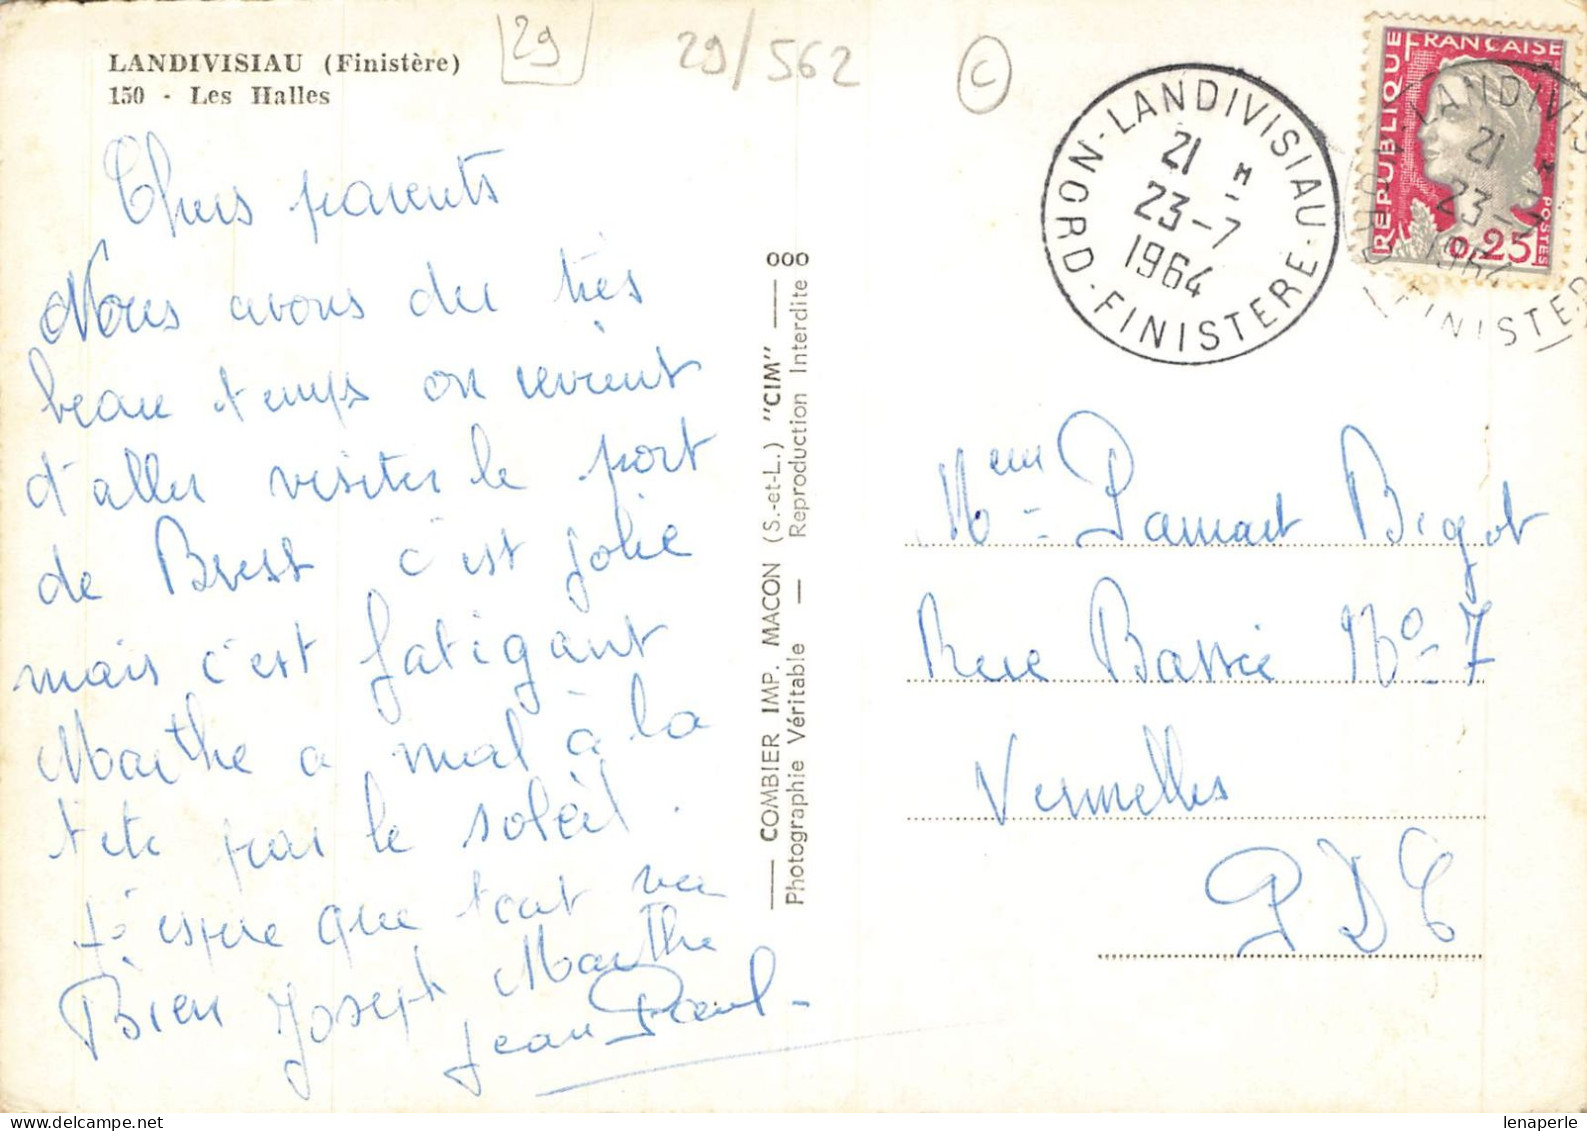 LANDIVISIAU (Finistère)
150 - Les Halles
29
29/562
C
Chers parents
Nous avons du très
beau temps on revient
d'aller visiter le port
de Brest c'est jolie
mais c'est fatigant
Marthe a mal à la
tete par le soleil.
j'espere que tout va
Bien Joseph Marthe
Jean Paul
COMBIER IMP. MACON (S.-et-L.) "CIM"
Photographie Véritable — Reproduction Interdite
000
NORD-LANDIVISIAU-FINISTERE
21 H
23-7
1964
REPUBLIQUE FRANÇAISE
0,25
POSTES
LANDIVIS
21
23-7
1964
FINISTER
Rue Bassée No 7
Vermelles
P D C
lenaperle